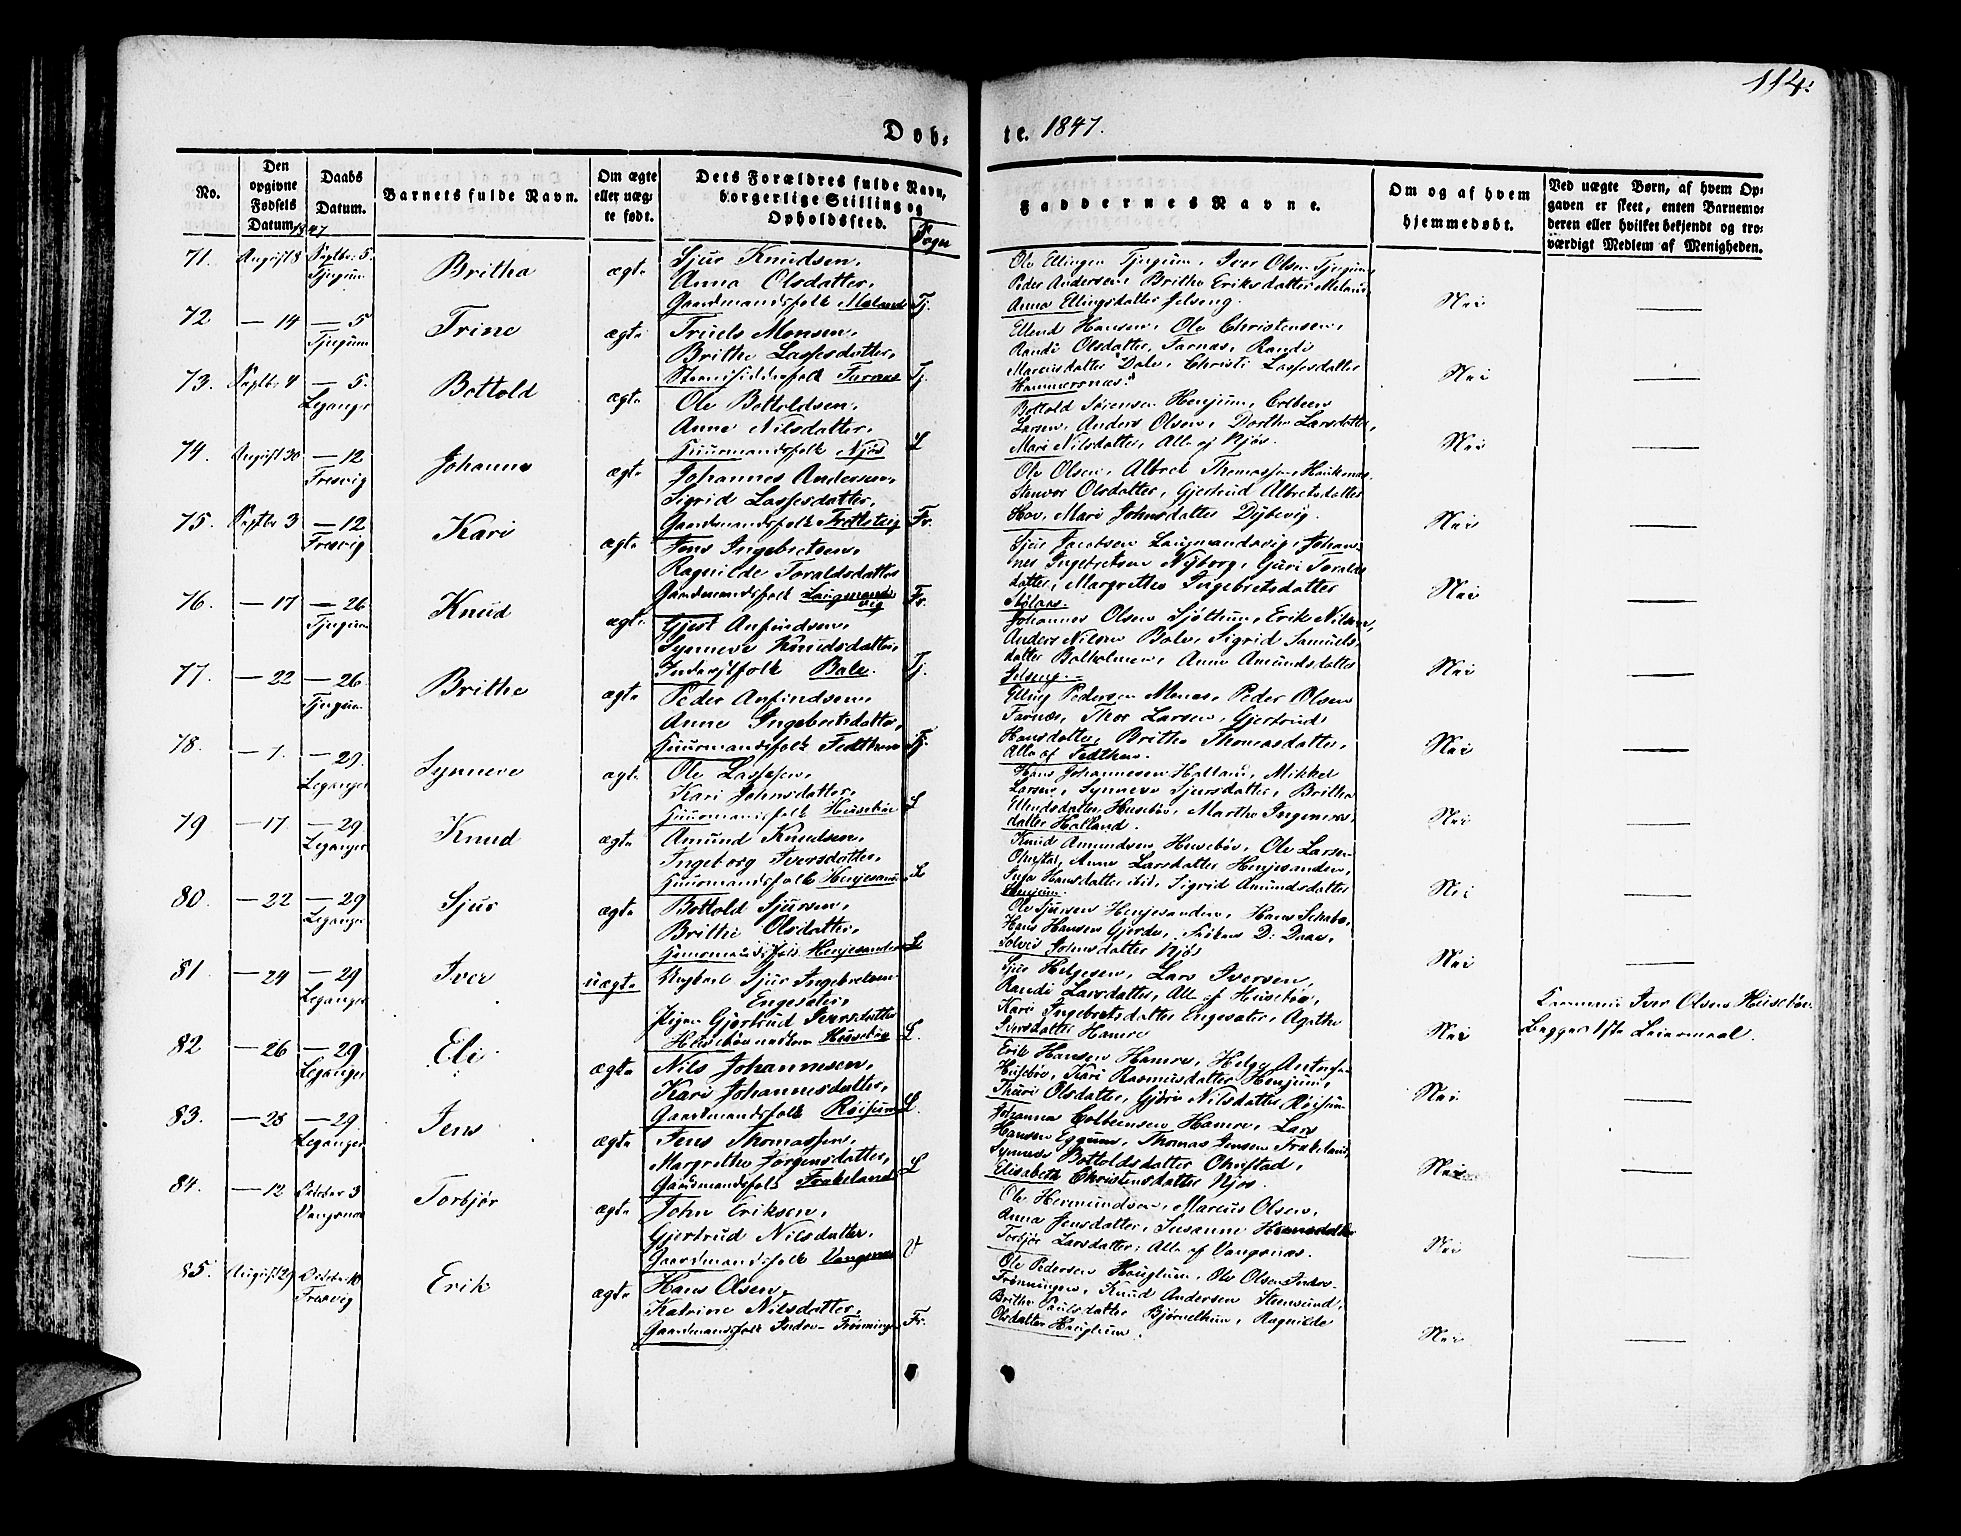 114.
Døb-
te. 1847.
No.
Den opgivne Fødsels Datum. 1847
Daabs Datum.
Barnets fulde Navn.
Om ægte eller uægte født.
Dets Forældres fulde Navn, borgerlige Stilling og Opholdssted.
Sogn
Faddernes Navne.
Om og af hvem hjemmedøbt.
Ved uægte Børn, af hvem Opgaven er skeet, enten Barnemoderen eller hvilket bekjendt og troværdigt Medlem af Menigheden.
71. August 8 Septbr. 5. Tjugum Britha ægte
Sjur Knudsen,
Anna Olsdatter,
Gaardmandsfolk Mæland Tj.
Ole Ellingsen Tjugum, Iver Olsen Tjugum,
Peder Andersen, Britha Eriksdatter Melan
Anna Ellingsdatter Jelseng.
Nei
72 — 14 — 5 Tjugum Trine ægte
Truels Monsen,
Brithe Lassesdatter,
Strandsidderfolk Farnæs Tj.
Ellend Hansen, Ole Christensen,
Randi Olsdatter, Farnæs, Randi
Marcusdatter Dale, Christi Lassesdatter
Hammersnæs.
Nei
73. Septbr. 4 — 5. Leganger Bottold ægte
Ole Bottoldsen,
Anne Nilsdatter,
Huusmandsfolk Njøs L
Bottold Sørensen Henjum, Colbeen
Larsen, Anders Olsen, Dorthe Larsdatter,
Mari Nilsdatter, Alle af Njøs.
Nei
74. August 30 — 12 Fresvig Johanne ægte
Johannes Andersen,
Sigrid Lassesdatter,
Gaardmandsfolk Fr.
Ole Olsen, Albret Thomassen Haukenæs
Olsdatter, Gjertrud Albretsdatter
Hov, Mari Johnsdatter Dybevig.
Nei
75. Septbr. 3 — 12 Fresvig Kari ægte
Jens Ingebretsen,
Ragnilde Toraldsdatter
Gaardmandsfolk Laugmandsvig Fr.
Sjur Jacobsen Laugmandsvig, Johan-
nes Ingebretsen Nyborg, Guri Toralds-
datter, Margrethe Ingebretsdatter
Nei
76. — 17 — 26. Tjugum Knud ægte
Gjest Anfindsen,
Synneve Knudsdatter,
Inderstfolk Bale. Tj.
Johannes Olsen Sjøttun, Erik Nilsen,
Anders Nilsen Bale, Sigrid Samuels-
datter Balholmen, Anne Amundsdatter
Jelseng.
Nei
77. — 22 — 26. Tjugum Brithe ægte
Peder Anfindsen,
Anne Ingebretsdatter,
Huusmandsfolk Fedthun Tj.
Elling Pedersen Menæs, Peder Olsen
Farnæs, Thor Larsen, Gjertrud
Hansdatter, Britha Thomasdatter,
Alle af Fedthun.
Nei
78. — 7. — 29. Leganger Synneve ægte
Ole Lassesen,
Kari Johnsdatter,
Huusmandsfolk Husebøe L
Hans Johannesen Halland, Mikkel
Larsen, Synneve Sjursdatter, Britha
Ellendsdatter, Husebø, Martha
datter Halland.
Nei
79 — 17. — 29. Leganger Knud ægte
Amund Knudsen,
Ingeborg Iversdatter,
Huusmandsfolk Henjesanden L
Knud Amundsen Husebøe, Ole Larsen
Ohnstad, Anne Larsdatter Henjesanden,
Hansdatter ibid, Sigrid Amundsdatter
Henjum.
Nei
80. — 22 — 29 Leganger Sjur ægte
Bottold Sjursen,
Brithe Olsdatter,
Huusmandsfolk Henjesanden L
Ole Sjursen Henjesanden, Hans Schabo,
Hans Hansen Gjerde, Frøken D: Daae,
Solvei Johnsdatter Njøs
Nei
81 — 24 — 29 Leganger Iver uægte
Ungkarl Sjur Ingebretsen
Engesæter,
Pigen Gjertrud Iversdatter
Husebøe L.
Sjur Helgesen, Lars Iversen,
Randi Larsdatter, Alle af Husebøe,
Kari Ingebretsdatter Engesæter, Agathe
Iversdatter Hamre
Nei
Iver Olsen Husebøe.
Begges 1ste Leiermaal.
82 — 26 — 29 Leganger Eli ægte
Nils Johannesen,
Kari Johannesdatter,
Gaardmandsfolk Røisum L.
Erik Hansen Hamre, Helge
Husebøe, Kari Rasmusdatter Henjum,
Thuri Olsdatter, Gjøri Nilsdatter Røisum
Nei
83. — 28 — 29 Leganger Jens ægte
Jens Thomassen,
Margrethe Jørgensdatter,
Gaardmandsfolk Frokeland L
Johannes Colbeensen Hamre, Lars
Hansen Eggum, Thomas Jensen Frokeland,
Synneve Bottoldsdatter Ohnstad,
Elisabeth Christensdatter Njøs.
Nei
84. — 12 October 3 Vangsnæs Torbjør ægte
John Eriksen,
Gjertrud Nilsdatter,
Gaardmandsfolk Vangsnæs V
Ole Hermundsen, Marcus Olsen,
Anna Jensdatter, Susanne Hansdatter
Torbjør Larsdatter, Alle af Vangsnæs.
Nei
85. August 29 October 10 Fresvig Erik ægte
Hans Olsen,
Katrine Nilsdatter,
Gaardmandsfolk Indre-Frønningen Fr.
Ole Pedersen Hauglum, Ole Olsen Indre-
Frønningen, Knud Andersen Steensund,
Britha Paulsdatter Bjørnethun, Ragnilde
Olsdatter Hauglum.
Nei